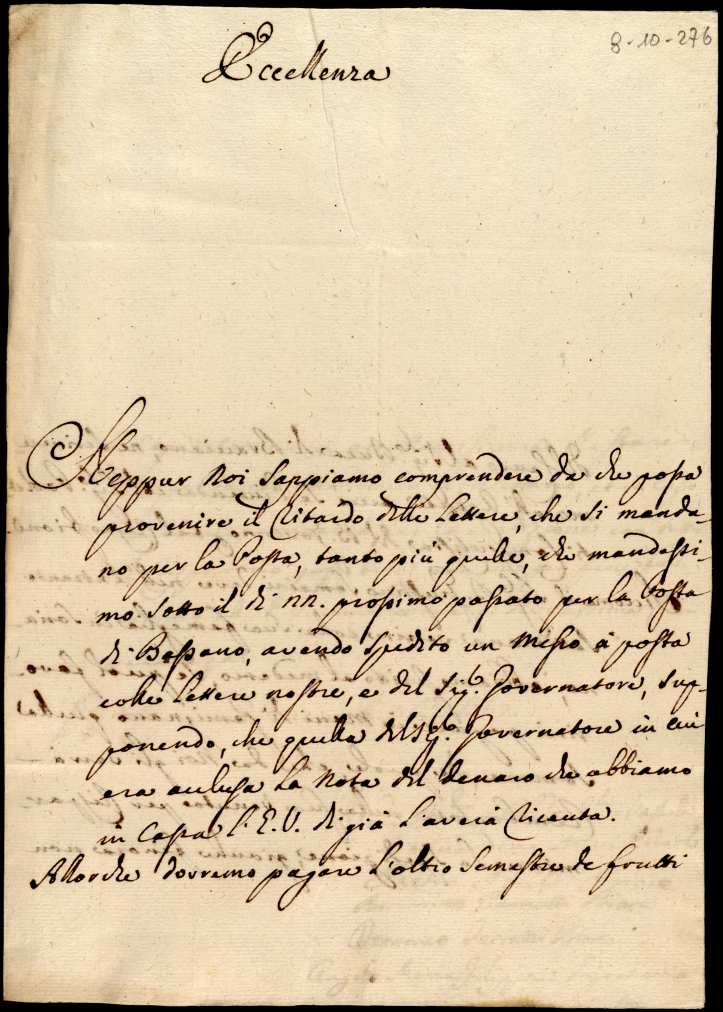 8-10-276
Eccellenza
Neppur Noi Sappiamo comprendere da che possa
provenire il Ritardo delle Lettere, che si manda-
no per la Posta, tanto più quelle, che mandassi-
mo sotto il di nn. prossimo passato per la Posta
di Bassano, avendo spedito un Messo à posta
colle Lettere nostre, e del Sig.r Governatore, sup-
ponendo, che quella del Sg.r Governatore in cui
era acclusa La Nota del denaro che abbiamo
in Cassa l'E.V. di già L'averà Ricevuta.
Allorche dovremo pagare L'altro Semestre de frutti